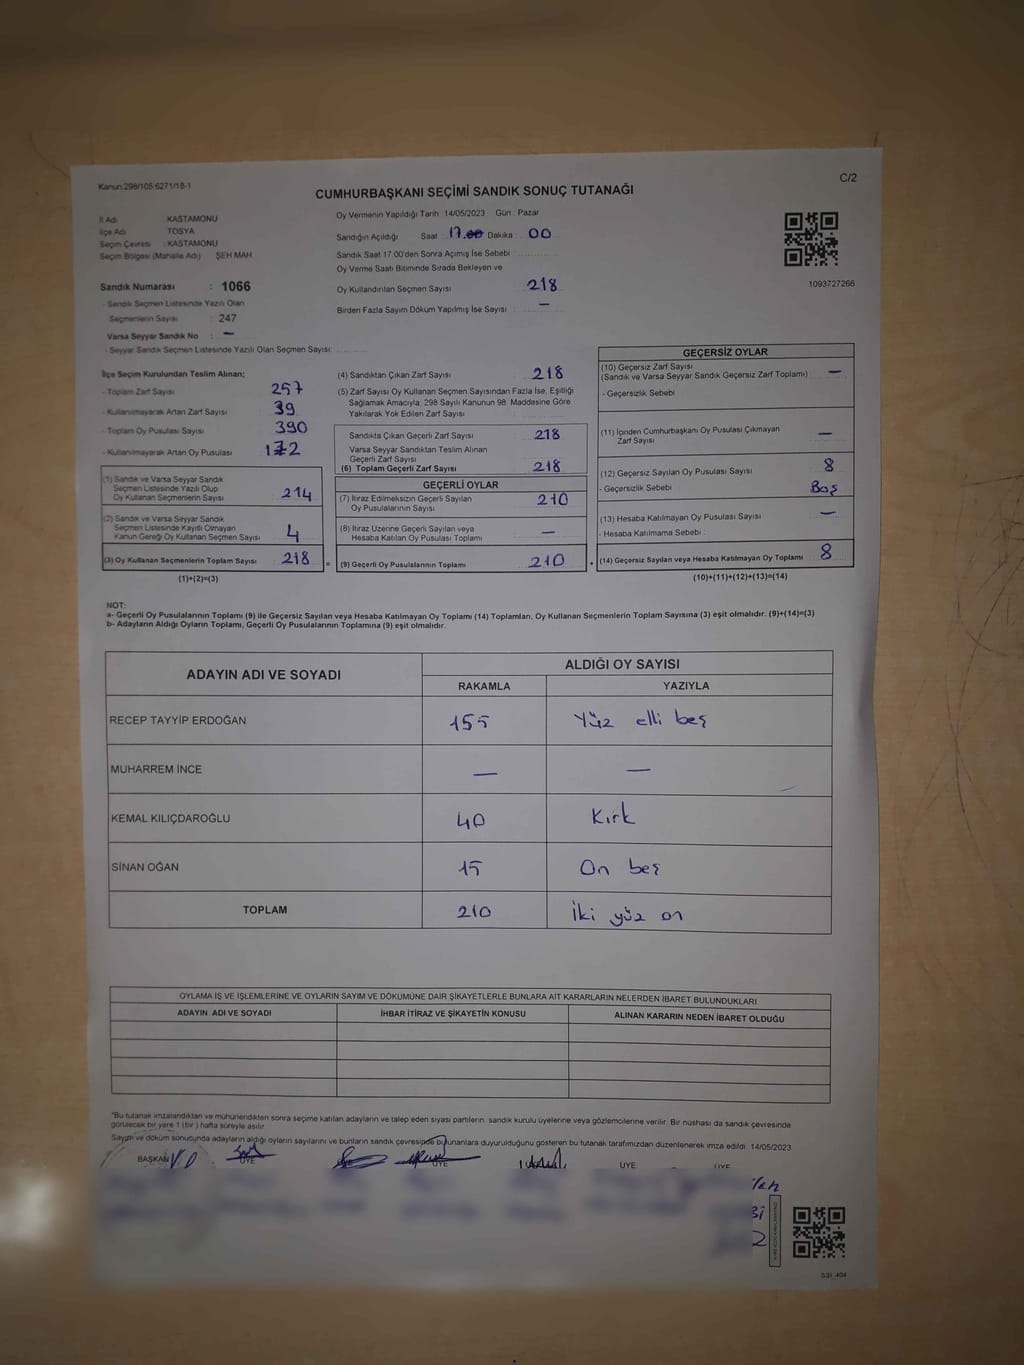 Kanun:298/105.6271/18-1
C/2
CUMHURBAŞKANI SEÇİMİ SANDIK SONUÇ TUTANAĞI
İl Adı : KASTAMONU
İlçe Adı : TOSYA
Seçim Çevresi : KASTAMONU
Seçim Bölgesi (Mahalle Adı) : ŞEH MAH
Sandık Numarası : 1066
- Sandık Seçmen Listesinde Yazılı Olan
Seçmenlerin Sayısı : 247
Varsa Seyyar Sandık No : —
- Seyyar Sandık Seçmen Listesinde Yazılı Olan Seçmen Sayısı:
Oy Vermenin Yapıldığı Tarih : 14/05/2023 Gün : Pazar
Sandığın Açıldığı Saat : 17.00 Dakika : 00
Sandık Saat 17.00'den Sonra Açımış İse Sebebi :
Oy Verme Saati Bitiminde Sırada Bekleyen ve
Oy Kullandırılan Seçmen Sayısı : 218
Birden Fazla Sayım Döküm Yapılmış İse Sayısı : —
1093727266
İlçe Seçim Kurulundan Teslim Alınan;
- Toplam Zarf Sayısı : 257
- Kullanılmayarak Artan Zarf Sayısı : 39
- Toplam Oy Pusulası Sayısı : 390
- Kullanılmayarak Artan Oy Pusulası : 172
(1) Sandık ve Varsa Seyyar Sandık
Seçmen Listesinde Yazılı Olup
Oy Kullanan Seçmenlerin Sayısı : 214
(2) Sandık ve Varsa Seyyar Sandık
Seçmen Listesinde Kayıtlı Olmayan
Kanun Gereği Oy Kullanan Seçmen Sayısı : 4
(3) Oy Kullanan Seçmenlerin Toplam Sayısı : 218
(1)+(2)=(3)
(4) Sandıktan Çıkan Zarf Sayısı : 218
(5) Zarf Sayısı Oy Kullanan Seçmen Sayısından Fazla İse, Eşitliği
Sağlamak Amacıyla, 298 Sayılı Kanunun 98. Maddesine Göre
Yakılarak Yok Edilen Zarf Sayısı :
Sandıkta Çıkan Geçerli Zarf Sayısı : 218
Varsa Seyyar Sandıktan Teslim Alınan
Geçerli Zarf Sayısı :
(6) Toplam Geçerli Zarf Sayısı : 218
GEÇERLİ OYLAR
(7) İtiraz Edilmeksizin Geçerli Sayılan
Oy Pusulalarının Sayısı : 210
(8) İtiraz Üzerine Geçerli Sayılan veya
Hesaba Katılan Oy Pusulası Toplamı : —
= (9) Geçerli Oy Pusulalarının Toplamı : 210
GEÇERSİZ OYLAR
(10) Geçersiz Zarf Sayısı
(Sandık ve Varsa Seyyar Sandık Geçersiz Zarf Toplamı) : —
- Geçersizlik Sebebi :
(11) İçinden Cumhurbaşkanı Oy Pusulası Çıkmayan
Zarf Sayısı : —
(12) Geçersiz Sayılan Oy Pusulası Sayısı : 8
- Geçersizlik Sebebi : Boş
(13) Hesaba Katılmayan Oy Pusulası Sayısı : —
- Hesaba Katılmama Sebebi :
+ (14) Geçersiz Sayılan veya Hesaba Katılmayan Oy Toplamı : 8
(10)+(11)+(12)+(13)=(14)
NOT:
a- Geçerli Oy Pusulalarının Toplamı (9) ile Geçersiz Sayılan veya Hesaba Katılmayan Oy Toplamı (14) Toplamları, Oy Kullanan Seçmenlerin Toplam Sayısına (3) eşit olmalıdır. (9)+(14)=(3)
b- Adayların Aldığı Oyların Toplamı, Geçerli Oy Pusulalarının Toplamına (9) eşit olmalıdır.
ADAYIN ADI VE SOYADI
ALDIĞI OY SAYISI
RAKAMLA YAZIYLA
RECEP TAYYİP ERDOĞAN 155 Yüz elli beş
MUHARREM İNCE — —
KEMAL KILIÇDAROĞLU 40 Kırk
SİNAN OĞAN 15 On beş
TOPLAM 210 İki yüz on
OYLAMA İŞ VE İŞLEMLERİNE VE OYLARIN SAYIM VE DÖKÜMÜNE DAİR ŞİKAYETLERLE BUNLARA AİT KARARLARIN NELERDEN İBARET BULUNDUKLARI
ADAYIN ADI VE SOYADI İHBAR İTİRAZ VE ŞİKAYETİN KONUSU ALINAN KARARIN NEDEN İBARET OLDUĞU
*Bu tutanak imzalandıktan ve mühürlendikten sonra seçime katılan adayların ve talep eden siyasi partilerin sandık kurulu üyelerine veya gözlemcilerine verilir. Bir nüshası da sandık çevresinde
görülecek bir yere 1 (bir) hafta süreyle asılır.
Sayım ve döküm sonucunda adayların aldığı oyların sayılarını ve bunların sandık çevresinde bulunanlara duyurulduğunu gösteren bu tutanak tarafımızdan düzenlenerek imza edildi. 14/05/2023
BAŞKAN ÜYE ÜYE ÜYE ÜYE